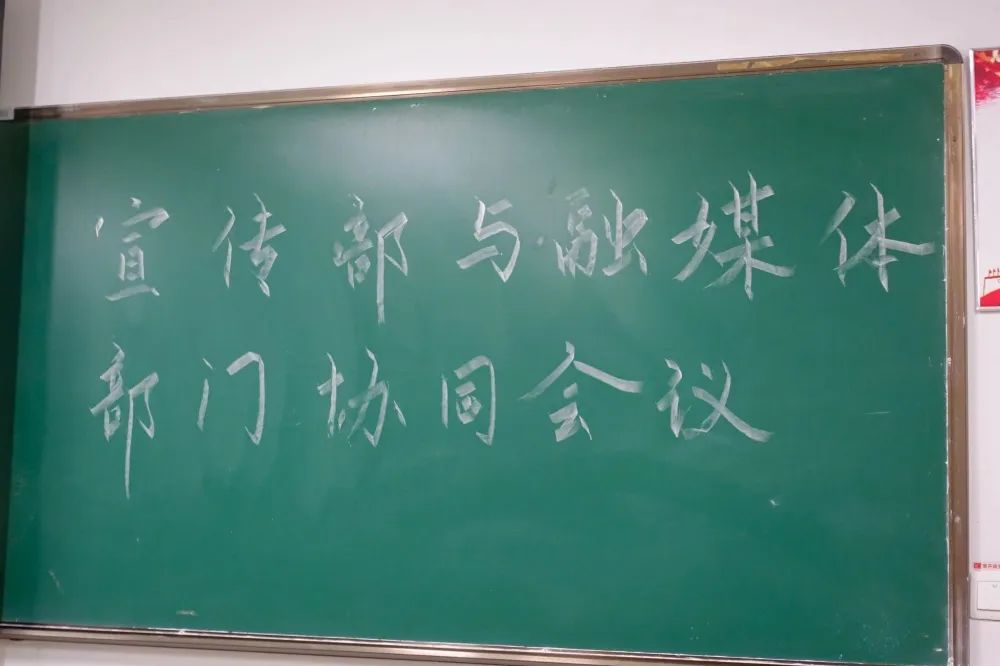 宣传部与融媒体
部门协同会议